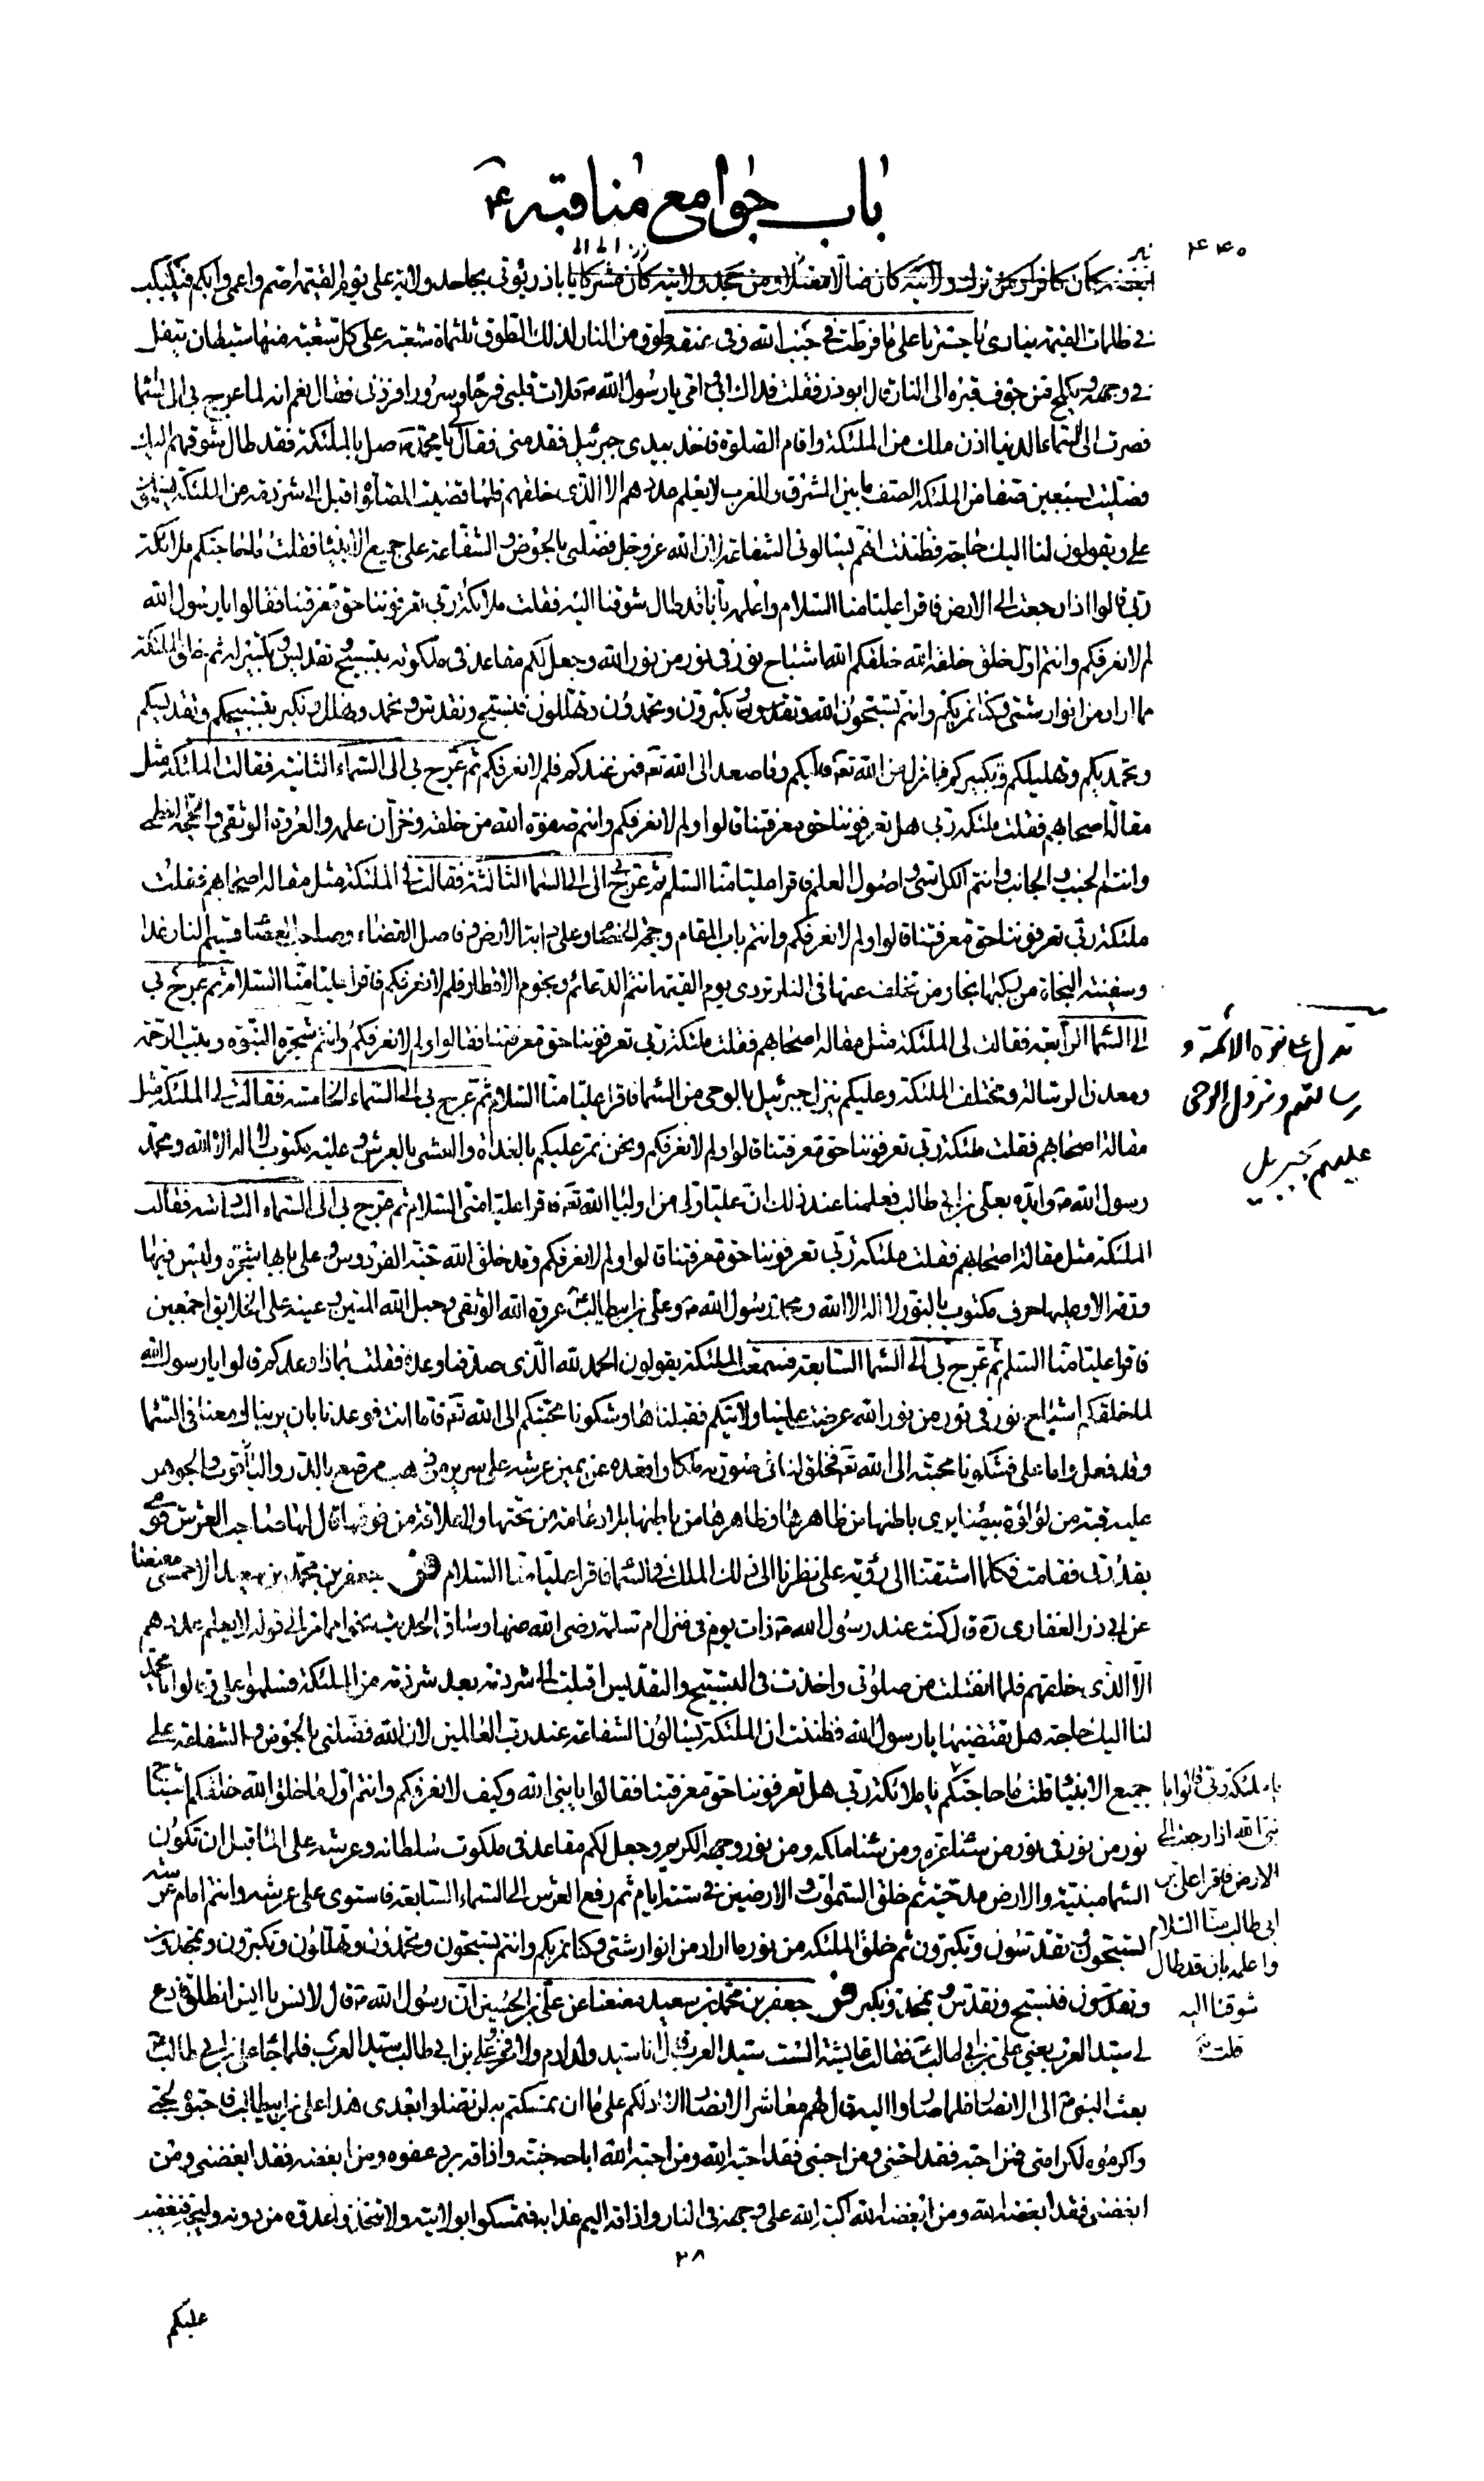 باب جوامع مناقبه ع
۴۴۰
ابغضه كان كافرا ومن ترك ولايته كان ضالا مضلا ومن جحد ولايته كان مشركا يا باذر يؤتى بجاحد ولاية على يوم القيمة اصم واعمى وابكم فيكبكب
فى ظلمات القيمة ينادى يا حسرتا على ما فرطت فى جنب الله وفى عنقه طوق من النار لذلك الطوق ثلثمائة شعبة على كل شعبة منها شيطان يتفل
فى وجهه ويكلح من جوف قبره الى النار قال ابوذر فقلت فداك ابى وامى يا رسول الله ص ملات قلبى فرحا وسرورا فزدنى فقال نعم انه لما عرج بى الى السما
فصرت الى السماء الدنيا اذن ملك من الملئكة واقام الصلوة فاخذ بيدى جبرئيل فقدمنى فقال لى يا محمد ص صل بالملئكة فقد طال شوقهم اليك
فصليت بسبعين صفا من الملئكة الصف ما بين المشرق والمغرب لا يعلم عددهم الا الذى خلقهم فلما قضيت الصلوة اقبل الى شرذمة من الملئكة يسلمون
على ويقولون لنا اليك حاجة فظننت انهم يسالونى الشفاعة لان الله عز وجل فضلنى بالحوض والشفاعة على جميع الانبيا فقلت ما حاجتكم ملائكة
ربى قالوا اذا رجعت الى الارض فاقرا عليا منا السلام واعلمه بانا قد طال شوقنا اليه فقلت ملائكة ربى تعرفوننا حق معرفتنا فقالوا يا رسول الله
لم لا نعرفكم وانتم اول خلق خلقه الله خلقكم الله اشباح نور فى نور من نور الله وجعل لكم مقاعد فى ملكوته بتسبيح وتقديس وتكبير له ثم خلق الملئكة
مما اراد من انوار شتى وكنا نمر بكم وانتم تسبحون الله وتقدسون وتكبرون وتحمدون وتهللون فنسبح ونقدس ونحمد ونهلل ونكبر بتسبيحكم وتقديسكم
وتحميدكم وتهليلكم وتكبيركم فما نزل من الله تعه فاليكم وما صعد الى الله تعه فمن عندكم فلم لا نعرفكم ثم عرج بى الى السماء الثانية فقالت الملئكة مثل
مقالة اصحابهم فقلت ملئكة ربى هل تعرفوننا حق معرفتنا قالوا ولم لا نعرفكم وانتم صفوة الله من خلقه وخزان علمه والعروة الوثقى والحجة العظمى
وانتم الجنب والجانب وانتم الكراسى واصول العلم فاقرا عليا منا السلم ثم عرج بى الى السما الثالثة فقالت لى الملئكة مثل مقالة اصحابهم فقلت
ملئكة ربى تعرفوننا حق معرفتنا قالوا ولم لا نعرفكم وانتم باب المقام وحجة الخصام وعلى دابة الارض وفاصل القضاء وصاحب العصا قسيم النار غدا
وسفينة النجاة من ركبها نجا ومن تخلف عنها فى النار تردى يوم القيمة انتم الدعائم ونجوم الاقطار فلم لا نعرفكم فاقرا عليا منا السلام ثم عرج بى
الى السما الرابعة فقالت لى الملئكة مثل مقالة اصحابهم فقلت ملئكة ربى تعرفوننا حق معرفتنا فقالوا ولم لا نعرفكم وانتم شجرة النبوة وبيت الرحمة
ومعدن الرسالة ومختلف الملئكة وعليكم ينزل جبرئيل بالوحى من السما فاقرا عليا منا السلام ثم عرج بى الى السماء الخامسة فقالت لى الملئكة مثل
مقالة اصحابهم فقلت ملئكة ربى تعرفوننا حق معرفتنا قالوا ولم لا نعرفكم ونحن نمر عليكم بالغداة والعشى بالعرش وعليه مكتوب لا اله الا الله ومحمد
رسول الله ص وايده بعلى بن ابى طالب فعلمنا عند ذلك ان عليا ولى من اوليا الله تعه فاقرا عليا منى السلام ثم عرج بى الى السماء السادسة فقالت
الملئكة مثل مقالة اصحابهم فقلت ملئكة ربى تعرفوننا حق معرفتنا قالوا ولم لا نعرفكم وقد خلق الله جنة الفردوس وعلى بابها شجرة وليس فيها
ورقة الا وعليها حرف مكتوب بالنور لا اله الا الله ومحمد رسول الله ص وعلى بن ابيطالب ع عروة الله الوثقى وحبل الله المتين وعينه على الخلايق اجمعين
فاقرا عليا منا السلم ثم عرج بى الى السما السابعة فسمعت الملئكة يقولون الحمد لله الذى صدقنا وعده فقلت بماذا وعدكم قالوا يا رسول الله
لما خلقكم اشباح نور فى نور من نور الله عرضت علينا ولايتكم فقبلناها وشكونا محبتكم الى الله تعه فاما انت فوعدنا بان يريناك معنا فى السما
وقد فعل واما على فشكونا محبته الى الله تعه فخلق لنا فى صورته ملكا واقعده عن يمين عرشه على سرير من ذهب مرصع بالدر والياقوت والجوهر
عليه قبة من لؤلؤة بيضا يرى باطنها من ظاهرها وظاهرها من باطنها بلا دعامة من تحتها ولا علاقة من فوقها قال لها صاحب العرش قومى
بقدرتى فقامت فكلما اشتقنا الى رؤية على نظرنا الى ذلك الملك فى السما فاقرا عليا منا السلام فر جعفر بن محمد بن سعيد الاحمسى معنعنا
عن ابى ذر الغفارى ره قال كنت عند رسول الله ص ذات يوم فى منزل ام سلمة رضى الله عنها وساق الحديث نحوا مما مر الى قوله لا يعلم عددهم
الا الذى خلقهم فلما انفتلت من صلوتى واخذت فى التسبيح والتقديس اقبلت الى شرذمة بعد شرذمة من الملئكة فسلموا على وقالوا يا محمد
لنا اليك حاجة هل تقضيها يا رسول الله فظننت ان الملئكة يسالون الشفاعة عند رب العالمين لان الله فضلنى بالحوض والشفاعة على
جميع الانبيا قلت ما حاجتكم يا ملائكة ربى هل تعرفوننا حق معرفتنا فقالوا يا نبى الله وكيف لا نعرفكم وانتم اول ما خلق الله خلقكم اشباح
نور من نور فى نور من سنا عزه ومن سنا ملكه ومن نور وجهه الكريم وجعل لكم مقاعد فى ملكوت سلطانه وعرشه على الما قبل ان تكون
السما مبنية والارض مدحية ثم خلق السموات والارضين فى ستة ايام ثم رفع العرش الى السماء السابعة فاستوى على عرشه وانتم امام عرشه
تسبحون وتقدسون وتكبرون ثم خلق الملئكة من نور ما اراد من انوار شتى وكنا نمر بكم وانتم تسبحون وتحمدون وتهللون وتكبرون وتمجدون
وتقدسون فنسبح ونقدس ونمجد ونكبر فر جعفر بن محمد بن سعيد معنعنا عن على بن الحسين ان رسول الله ص قال لانس يا انس انطلق فادع
لى سيد العرب يعنى على بن ابى طالب فقالت عايشة الست سيد العرب قال انا سيد ولد ادم ولا فخر وعلى بن ابى طالب سيد العرب فلما جاء على بن ابى طالب ع
بعث النبى ص الى الانصار فلما صاروا اليه قال لهم معاشر الانصار الا ادلكم على ما ان تمسكتم به لن تضلوا بعدى هذا على بن ابيطالب فاحبوه لحبى
واكرموه لكرامتى فمن احبه فقد احبنى ومن احبنى فقد احبه الله ومن احبه الله اباحه جنته واذاقه برد عفوه ومن ابغضه فقد ابغضنى ومن
ابغضنى فقد ابغضه الله ومن ابغضه الله اكبه الله على وجهه فى النار واذاقه اليم عذابه فتمسكوا بولايته ولا تتخذوا عدوه من دونه وليجة فيغضب
تدل على نبوة الائمة و
رسالتهم ونزول الوحى
عليهم بجبريل
يا ملئكة ربى قالوا يا
نبى الله اذا رجعت الى
الارض فاقرا على بن
ابى طالب منا السلام
واعلمه بان قد طال
شوقنا اليه
قلت
۲۸
عليكم